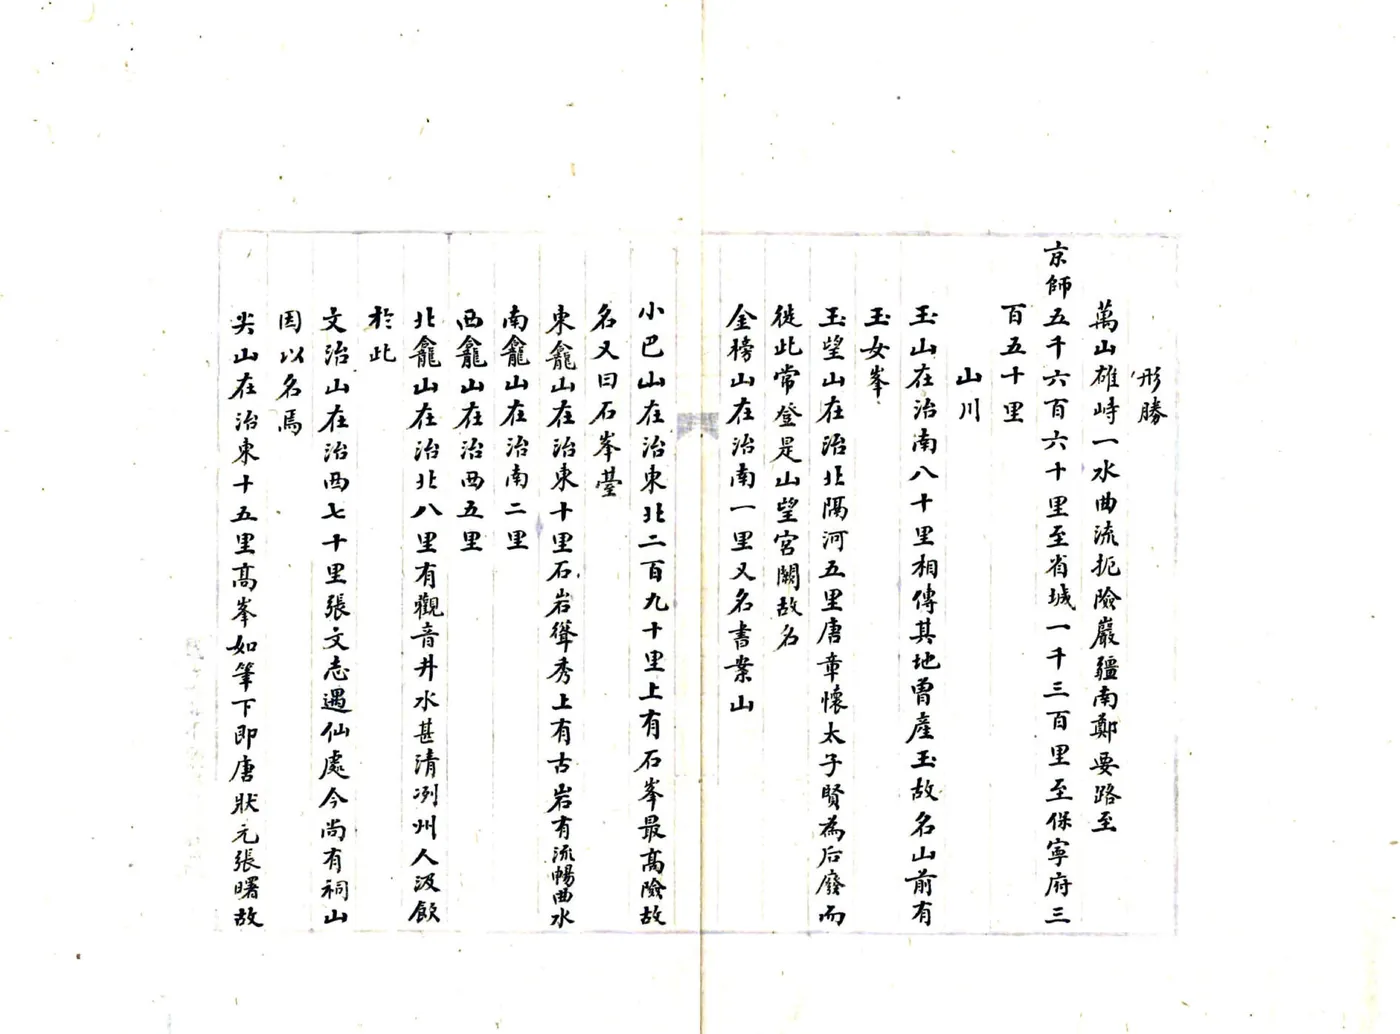 形勝
萬山雄峙一水曲流扼險巖疆南鄭要路至
京師五千六百六十里至省城一千三百里至保寧府三
百五十里
山川
玉山在治南八十里相傳其地曾產玉故名山前有
玉女峯
玉望山在治北隔河五里唐章懷太子賢為后廢而
徙此常登是山望宮闕故名
金榜山在治南一里又名書案山
小巴山在治東北二百九十里上有石峯最高險故
名又曰石峯臺
東龕山在治東十里石岩聳秀上有古岩有流暢曲水
南龕山在治南二里
西龕山在治西五里
北龕山在治北八里有觀音井水甚清冽州人汲飲
於此
文治山在治西七十里張文志遇仙處今尚有祠山
因以名焉
尖山在治東十五里高峯如筆下即唐狀元張曙故